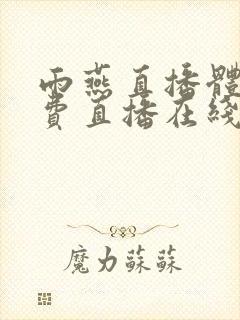 雨燕直播體
費直播在綫
魔力蘇蘇